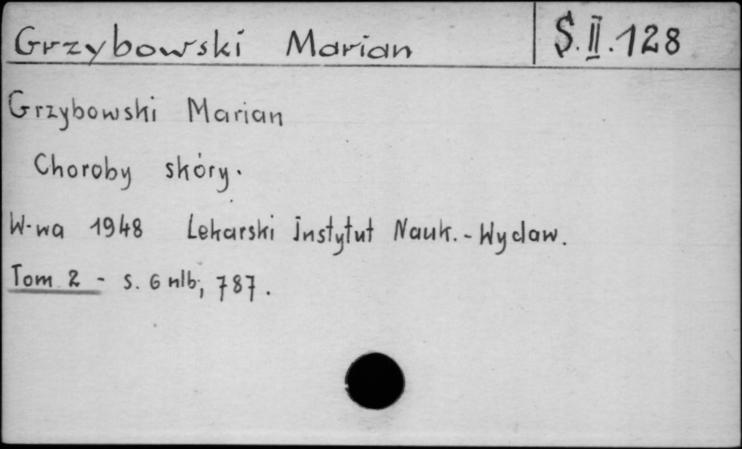 Grzybowski Marian
S.II.128
Grzybowski Marian
Choroby skóry.
W-wa 1948 Lekarski instytut Nauk.-Wydaw.
Tom 2 - s. 6 nlb, 787.